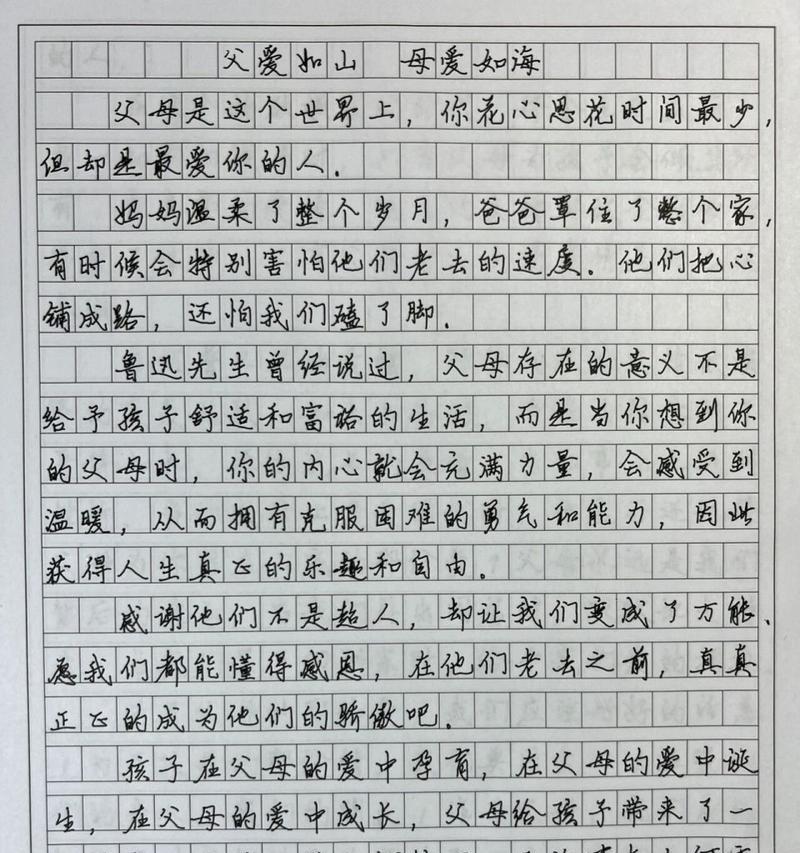 父爱如山 母爱如海
父母是这个世界上，你花心思花时间最少，
但却是最爱你的人．
妈妈温柔了整个岁月，爸爸罩住了整个家，
有时候会特别害怕他们老去的速度．他们把心
铺成路，还怕我们磕了脚．
鲁迅先生曾经说过，父母存在的意义不是
给予孩子舒适和富裕的生活，而是当你想到你
的父母时，你的内心就会充满力量，会感受到
温暖，从而拥有克服困难的勇气和能力，因此
获得人生真正的乐趣和自由。
感谢他们不是超人，却让我们变成了万能、
愿我们都能懂得感恩，在他们老去之前，真真
正正的成为他们的骄傲吧．
孩子在父母的爱中孕育，在父母的爱中诞
生，在父母的爱中成长，父母给孩子带来了一